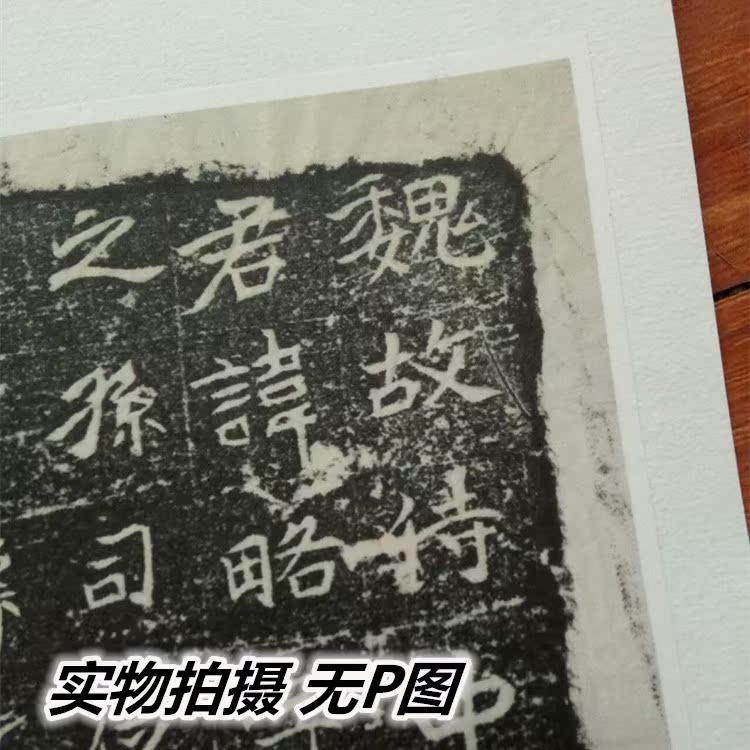 魏故持中
君諱略
之孫司
实物拍摄 无P图